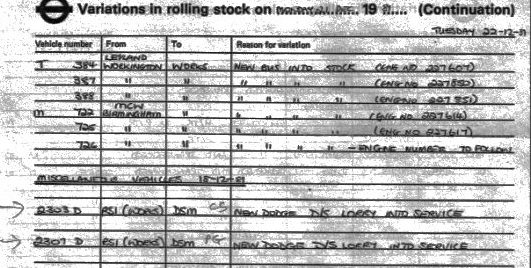 Variations in rolling stock on 19 (Continuation)
TUESDAY 22-12-81
Vehicle number From To Reason for variation
LEYLAND
T 384 WORKINGTON WORKS NEW BUS INTO STOCK (ENG NO 227607)
387 " " " " " " (ENG NO 227850)
388 " " " " " " (ENG NO 227851)
MCW
M 722 BIRMINGHAM " " " " " (ENG NO 227614)
725 " " " " " " (ENG NO 227617)
726 " " " " " " - ENGINE NUMBER TO FOLLOW
MISCELLANEOUS VEHICLES 18-12-81
2303 D RSI (WORKS) DSM NEW DODGE D/S LORRY INTO SERVICE
2307 D RSI (WORKS) DSM NEW DODGE D/S LORRY INTO SERVICE